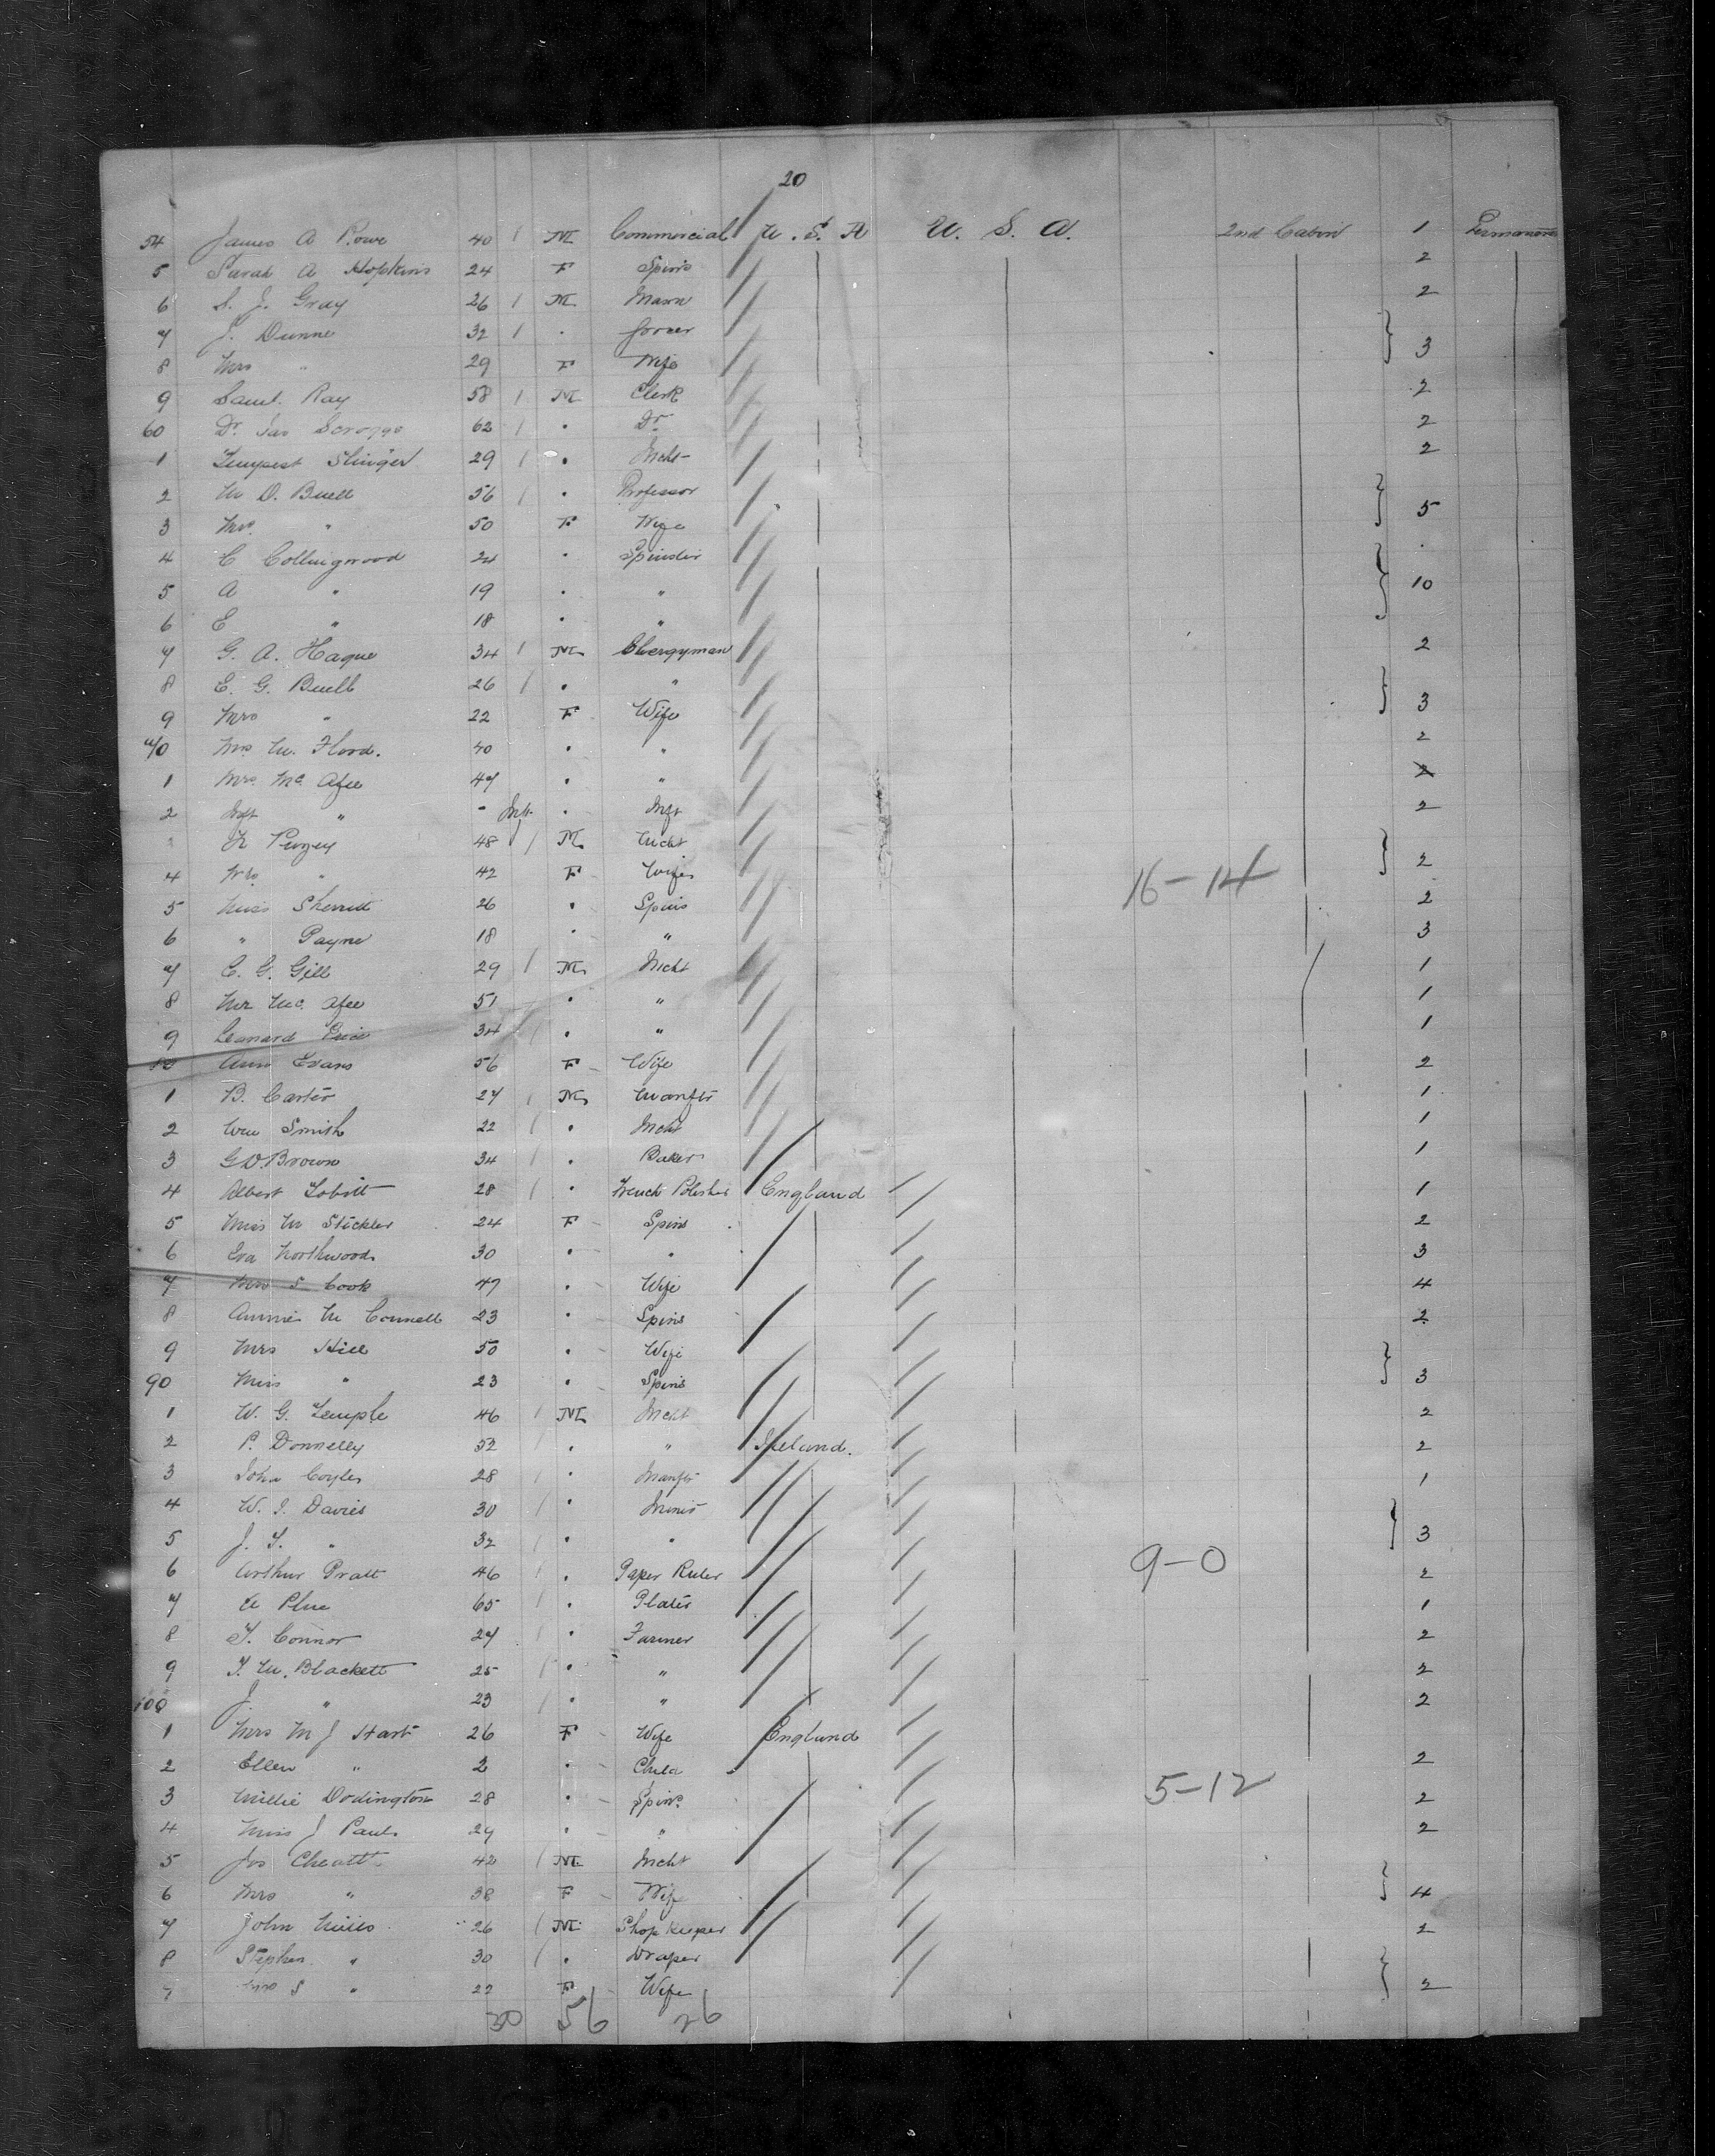 20
54 James A Rowe 40 1 M Commercial U. S. A U. S. A. 2nd Cabin 1
5 Sarah A Hopkins 24 F Spins 2
6 S. J. Gray 26 1 M Mason 2
7 J. Dunne 32 1 .
8 Mrs " 29 F Wife 3
9 Saml. Ray 58 1 M Clerk 2
60 Dr. Jas Scroggs 62 1 . Dr. 2
1 Tempest Slinger 29 1 . Mcht 2
2 M D. Buell 56 1 . Professor
3 Mrs. " 50 F Wife 5
4 C Collingwood 24 . Spinster
5 A " 19 . " 10
6 E " 18 . "
7 G. A. Hague 34 1 M Clergyman 2
8 E. G. Buell 26 1 . "
9 Mrs " 22 F Wife 3
70 Mrs. M. Flood. 40 . " 2
1 Mrs. Mc Afee 47 . " 2
2 Inft " - Inft . Inft 2
48 1 M Mcht
4 Mrs. " 42 F Wife 2
16-14
5 Miss Sherritt 26 . Spins 2
6 " Payne 18 . " 3
7 C. G. Gill 29 1 M Mcht 1
8 Mr Mc. Afee 51 . " 1
9 Leonard Price 34 1 . " 1
80 Ann Evans 56 F Wife 2
1 B. Carter 27 1 M Manftr 1
2 Wm Smith 22 1 . Mcht 1
3 G D. Brown 34 1 . Baker 1
4 Albert 28 1 . French Polisher England 1
5 Miss M Stickler 24 F Spins 2
6 Eva Northwood 30 . " 3
7 Mrs S Cook 47 . Wife 4
8 Annie M Connell 23 . Spins 2
9 Mrs Hill 50 . Wife
90 Miss " 23 . Spins 3
1 W. G. Temple 46 1 M Mcht 2
2 P. Donnelly 52 1 . " Ireland. 2
3 John Coyle 28 1 . Manftr 1
4 W. J. Davies 30 1 .
5 J. T. " 32 1 . " 3
9-0
6 Arthur Pratt 46 1 . Paper Ruler 2
7 65 1 . Plater 1
8 T. Connor 27 1 . Farmer 2
9 T. M. Blackett 25 1 . " 2
100 J " 23 1 . " 2
1 Mrs M J Hart 26 F Wife England
2 Ellen " 2 . Child 2
5-12
3 Millie Dodington 28 . Spins. 2
4 Miss J Paul. 29 . " 2
5 Jos Cheatt 42 1 M Mcht
6 Mrs " 38 F Wife 4
7 John 26 1 M Shop Keeper 2
8 Stephen " 30 1 . Draper
Mrs S " 22 F Wife 2
56 26